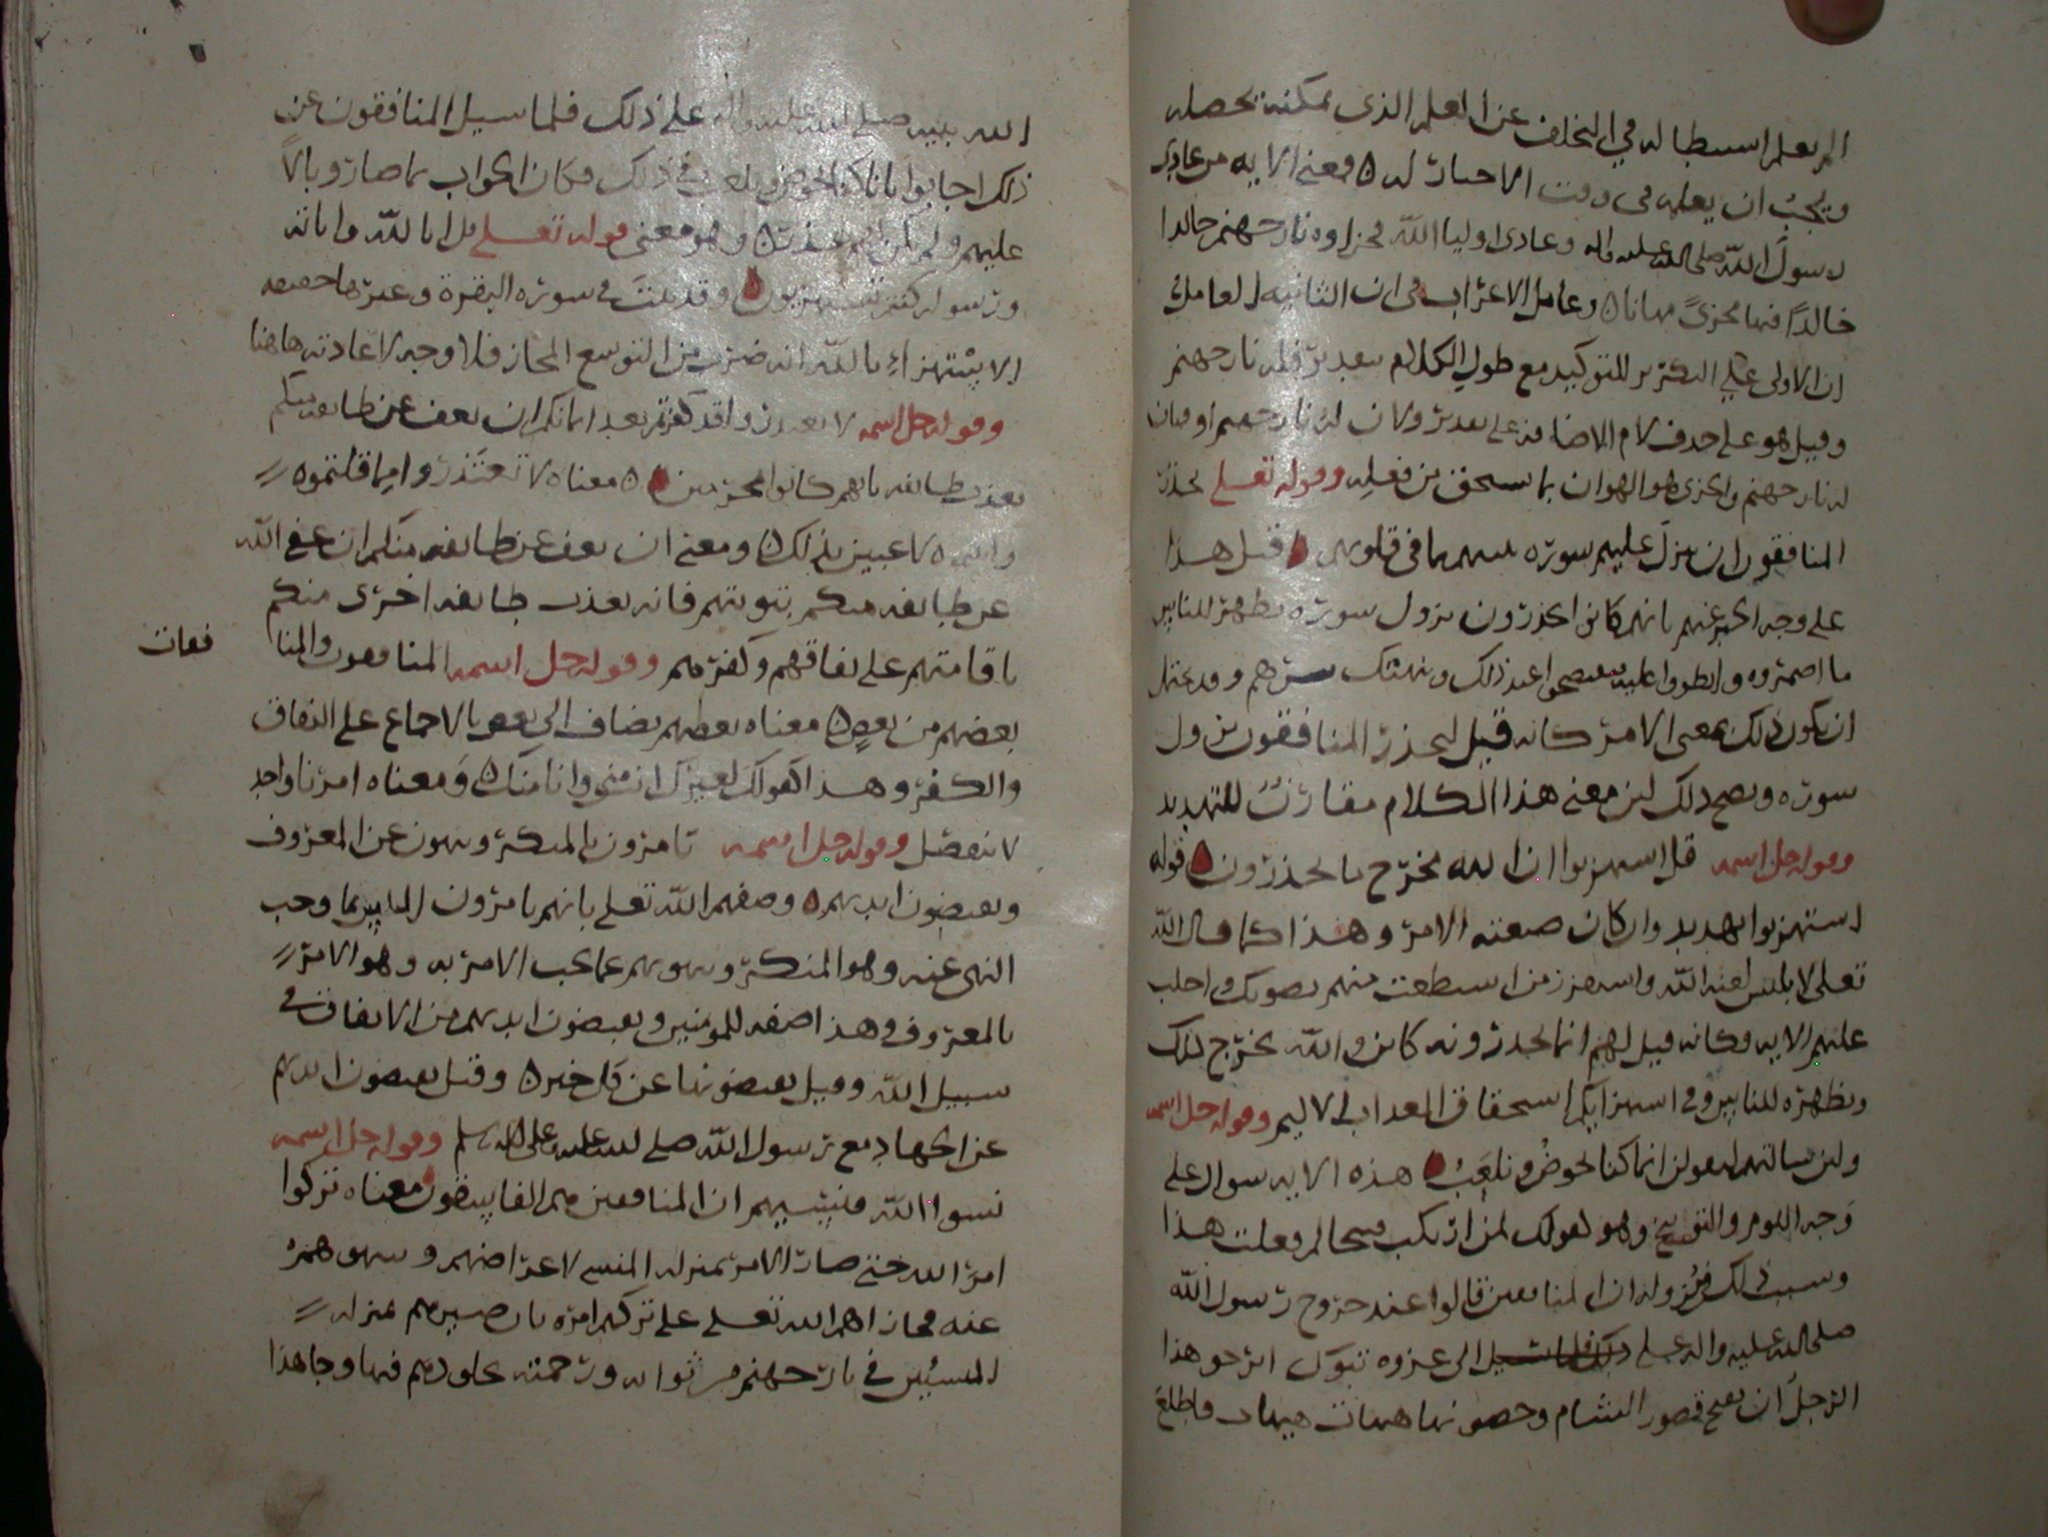 الم يعلم استبطا له في التخلف عن العلم الذي يمكنه تحصله
ويجب ان يعلمه في وقت الاخبار له ٥ ومعنى الايه من عادى
رسول الله صلى الله عليه واله وعادى اوليا الله فجزاوه نار جهنم خالدا
خالدًا فيها مخزيً مهانا ٥ وعامل الاعراب في ان الثانيه العامل
ان الاولى على التكرير للتوكيد مع طول الكلام بتقدير فله نار جهنم
وقيل هو على حذف لام الاضافه على تقدير ولان له نار جهنم او فبان
له نار جهنم والخزي هو الهوان بما يستحق من فعله وقوله تعلى يحذر
المنافقون ان ينزل عليهم سوره تنبيهم بما في قلوبهم ٥ قيل هذا
على وجه الخبر عنهم بانهم كانوا يحذرون نزول سوره تظهر للناس
ما اضمروه وانطووا عليه فيفتضحوا عند ذلك وينهتك سترهم وقد يحتمل
ان يكون ذلك بمعنى الامر كانه قيل ليحذر المنافقون نزول
سوره ويصح ذلك لان معنى هذا الكلام مقارنٌ للتهديد
وقوله جل اسمه قل استهزيوا ان الله مخرج ما تحذرون ٥ قوله
استهزيوا تهديد وان كان صيغته الامر وهذا كما قال الله
تعلى لابليس لعنه الله واستفزز من استطعت منهم بصوتك واجلب
عليهم الايه وكانه قيل لهم انما تحذرونه كاين والله مخرج لذلك
ويظهره للناس وفي استهزايكم استحقاق العذاب الاليم وقوله جل اسمه
ولئن سالتهم ليقولن انما كنا نخوضُ ونلعَبُ ٥ هذه الايه سوال على
وَجه اللوم والتوبيخ وهو كقولك لمن ارتكب قبيحا لم فعلت هذا
وسبب ذلك في نزوله ان المنافقين قالوا عند خروج رسول الله
صلى الله عليه واله الى غزوه تبوك ايرجو هذا
الرجل ان يفتح قصور الشام وحصونها هيهات هيهات فاطلع
الله نبيه صلى الله عليه واله على ذلك فلما سيل المنافقون عن
ذلك اجابوا بانا كنا نخوض ونلعب في ذلك فكان الجواب بما صار وبالاً
عليهم ولم يكن لهم عذر ٥ وهو معنى قوله تعلى قل ابا لله واياته
ورسوله كنتم تستهزيون ٥ وقد بينتَ في سوره البقرة وغيرها حقيقه
الاستهزاءِ بالله انه ضرب من التوسع المجاز فلا وجه لاعادته هاهنا
وقوله جل اسمه لا تعتذروا قد كفرتم بعد ايمانكم ان يعف عن طايفه منكم
نعذب طايفه بانهم كانوا مجرمين ٥ معناه لا تعتذروا انما قلتموه
وانتم لاعبين بذلك ٥ ومعنى ان يعف عن طايفه منكم ان عفى الله
عن طايفه منكم بتوبتهم فانه يعذب طايفه اخرى منكم
باقامتهم على نفاقهم وكفرهم وقوله جل اسمه المنافقون والمنا
فقات
بعضهم من بعضٍ ٥ معناه بعضهم يضاف الى بعض بالاجماع على النفاق
والكفر وهذا كقولك لغيرك انت مني وانا منك ٥ وَمعناه امرنا واحد
لا ينفصل وقوله جل اسمه يامرون بالمنكر وينهون عن المعروف
ويقبضون ايديهم ٥ وصفهم الله تعلى بانهم يامرون الناس بما وجب
النهي عنه وهو المنكر وينهونهم عما يجب الامر به وهو الامر
بالمعروف وهذا صفه للمومنين ويقبضون ايديهم من الانفاق في
سبيل الله وقيل يقبضونها عن كل خير ٥ وقيل يقبضون ايديهم
عن الجهاد مع رسول الله صلى الله عليه وعلى اله وسلم وقوله جل اسمه
نسوا الله فنسيهم ان المنافقين هم الفاسقون معناه تركوا
امرَ الله حتى صار الامر بمنزله المنسي لاعراضهم وسهوهم
عنه فجازاهم الله تعلى على تركهم امره بان صيرهم بمنزله
المنسيين في نار جهنم من ثوابه ورحمته خلودهم فيها وجا هذا